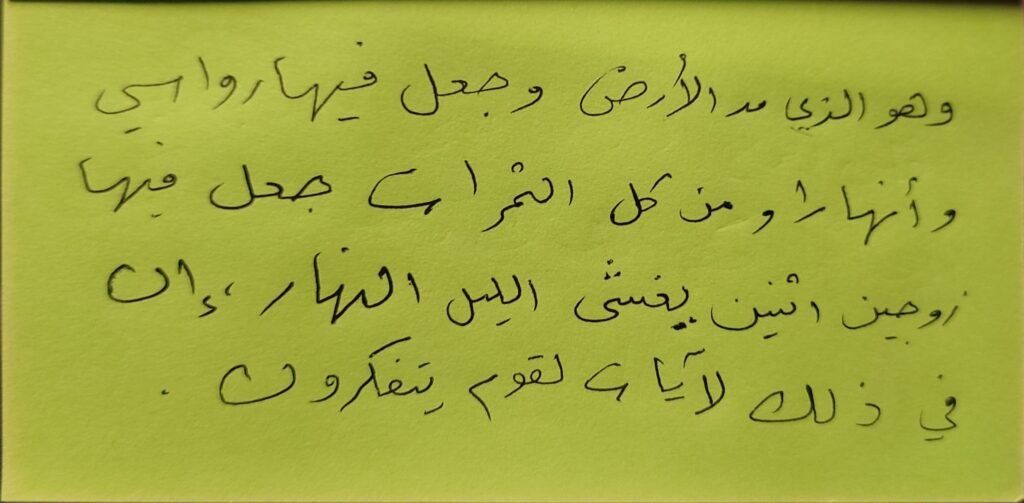 وهو الذي مد الأرض وجعل فيها رواسي
وأنهارا ومن كل الثمرات جعل فيها
زوجين اثنين يغشى الليل النهار، إن
في ذلك لآيات لقوم يتفكرون.